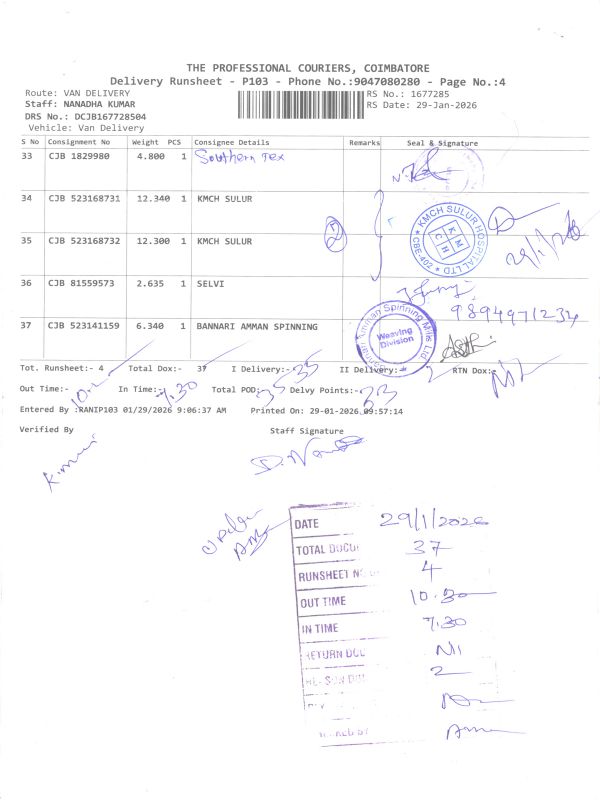 THE PROFESSIONAL COURIERS, COIMBATORE
Delivery Runsheet - P103 - Phone No.:9047080280 - Page No.:4
Route: VAN DELIVERY RS No.: 1677285
Staff: NANADHA KUMAR RS Date: 29-Jan-2026
DRS No.: DCJB167728504
Vehicle: Van Delivery
S No Consignment No Weight PCS Consignee Details Remarks Seal & Signature
33 CJB 1829980 4.800 1 Southern Tex
34 CJB 523168731 12.340 1 KMCH SULUR
35 CJB 523168732 12.300 1 KMCH SULUR
2
KMCH SULUR HOSPITAL LTD
CBE-402
KMCH
29/1/26
36 CJB 81559573 2.635 1 SELVI
9894971234
37 CJB 523141159 6.340 1 BANNARI AMMAN SPINNING
Amman Spinning Mills Ltd
Weaving Division
Tot. Runsheet:- 4 Total Dox:- 37 I Delivery:- 35 II Delivery:- 2 RTN Dox:-
Out Time:- In Time:- 7.30 Total POD:- 35 Delvy Points:- 33
Entered By :RANIP103 01/29/2026 9:06:37 AM Printed On: 29-01-2026 09:57:14
Verified By Staff Signature
DATE 29/1/2026
TOTAL DOCU 37
RUNSHEET N 4
OUT TIME 10.30
IN TIME 7.30
RETURN DOC Nil
2